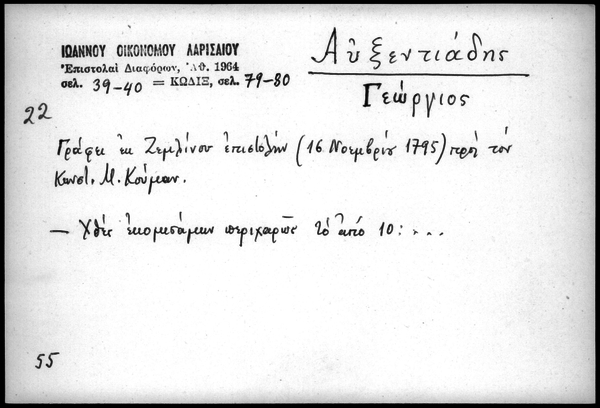 ΙΩΑΝΝΟΥ ΟΙΚΟΝΟΜΟΥ ΛΑΡΙΣΑΙΟΥ
Ἐπιστολαὶ Διαφόρων, Ἀθ. 1964
σελ. 39-40 = ΚΩΔΙΞ, σελ. 79-80
Αὐξεντιάδης
Γεώργιος
22
Γράφει ἐκ Ζεμλίνου ἐπιστολὴν (16 Νοεμβρίου 1795) πρὸς τὸν
Κωνστ. Μ. Κούμαν.
— Χθὲς ἐκομισάμην περιχαρῶς τὸ ἀπό 10: ...
55